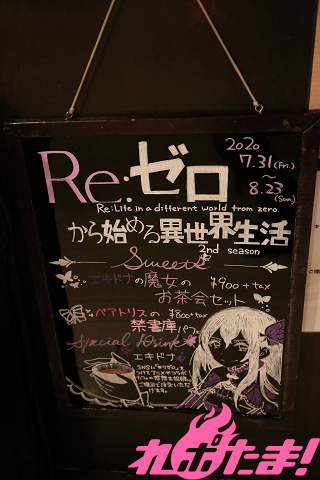 Re:ゼロ
2020
7.31(Fri.)
~
8.23(Sun)
Re:Life in a different world from zero.
から始める異世界生活
2nd season
Sweets
エキドナの魔女の
お茶会セット
¥900+tax
ベアトリスの
禁書庫パフェ
¥800+tax
Special Drink
エキドナ
れポたま!